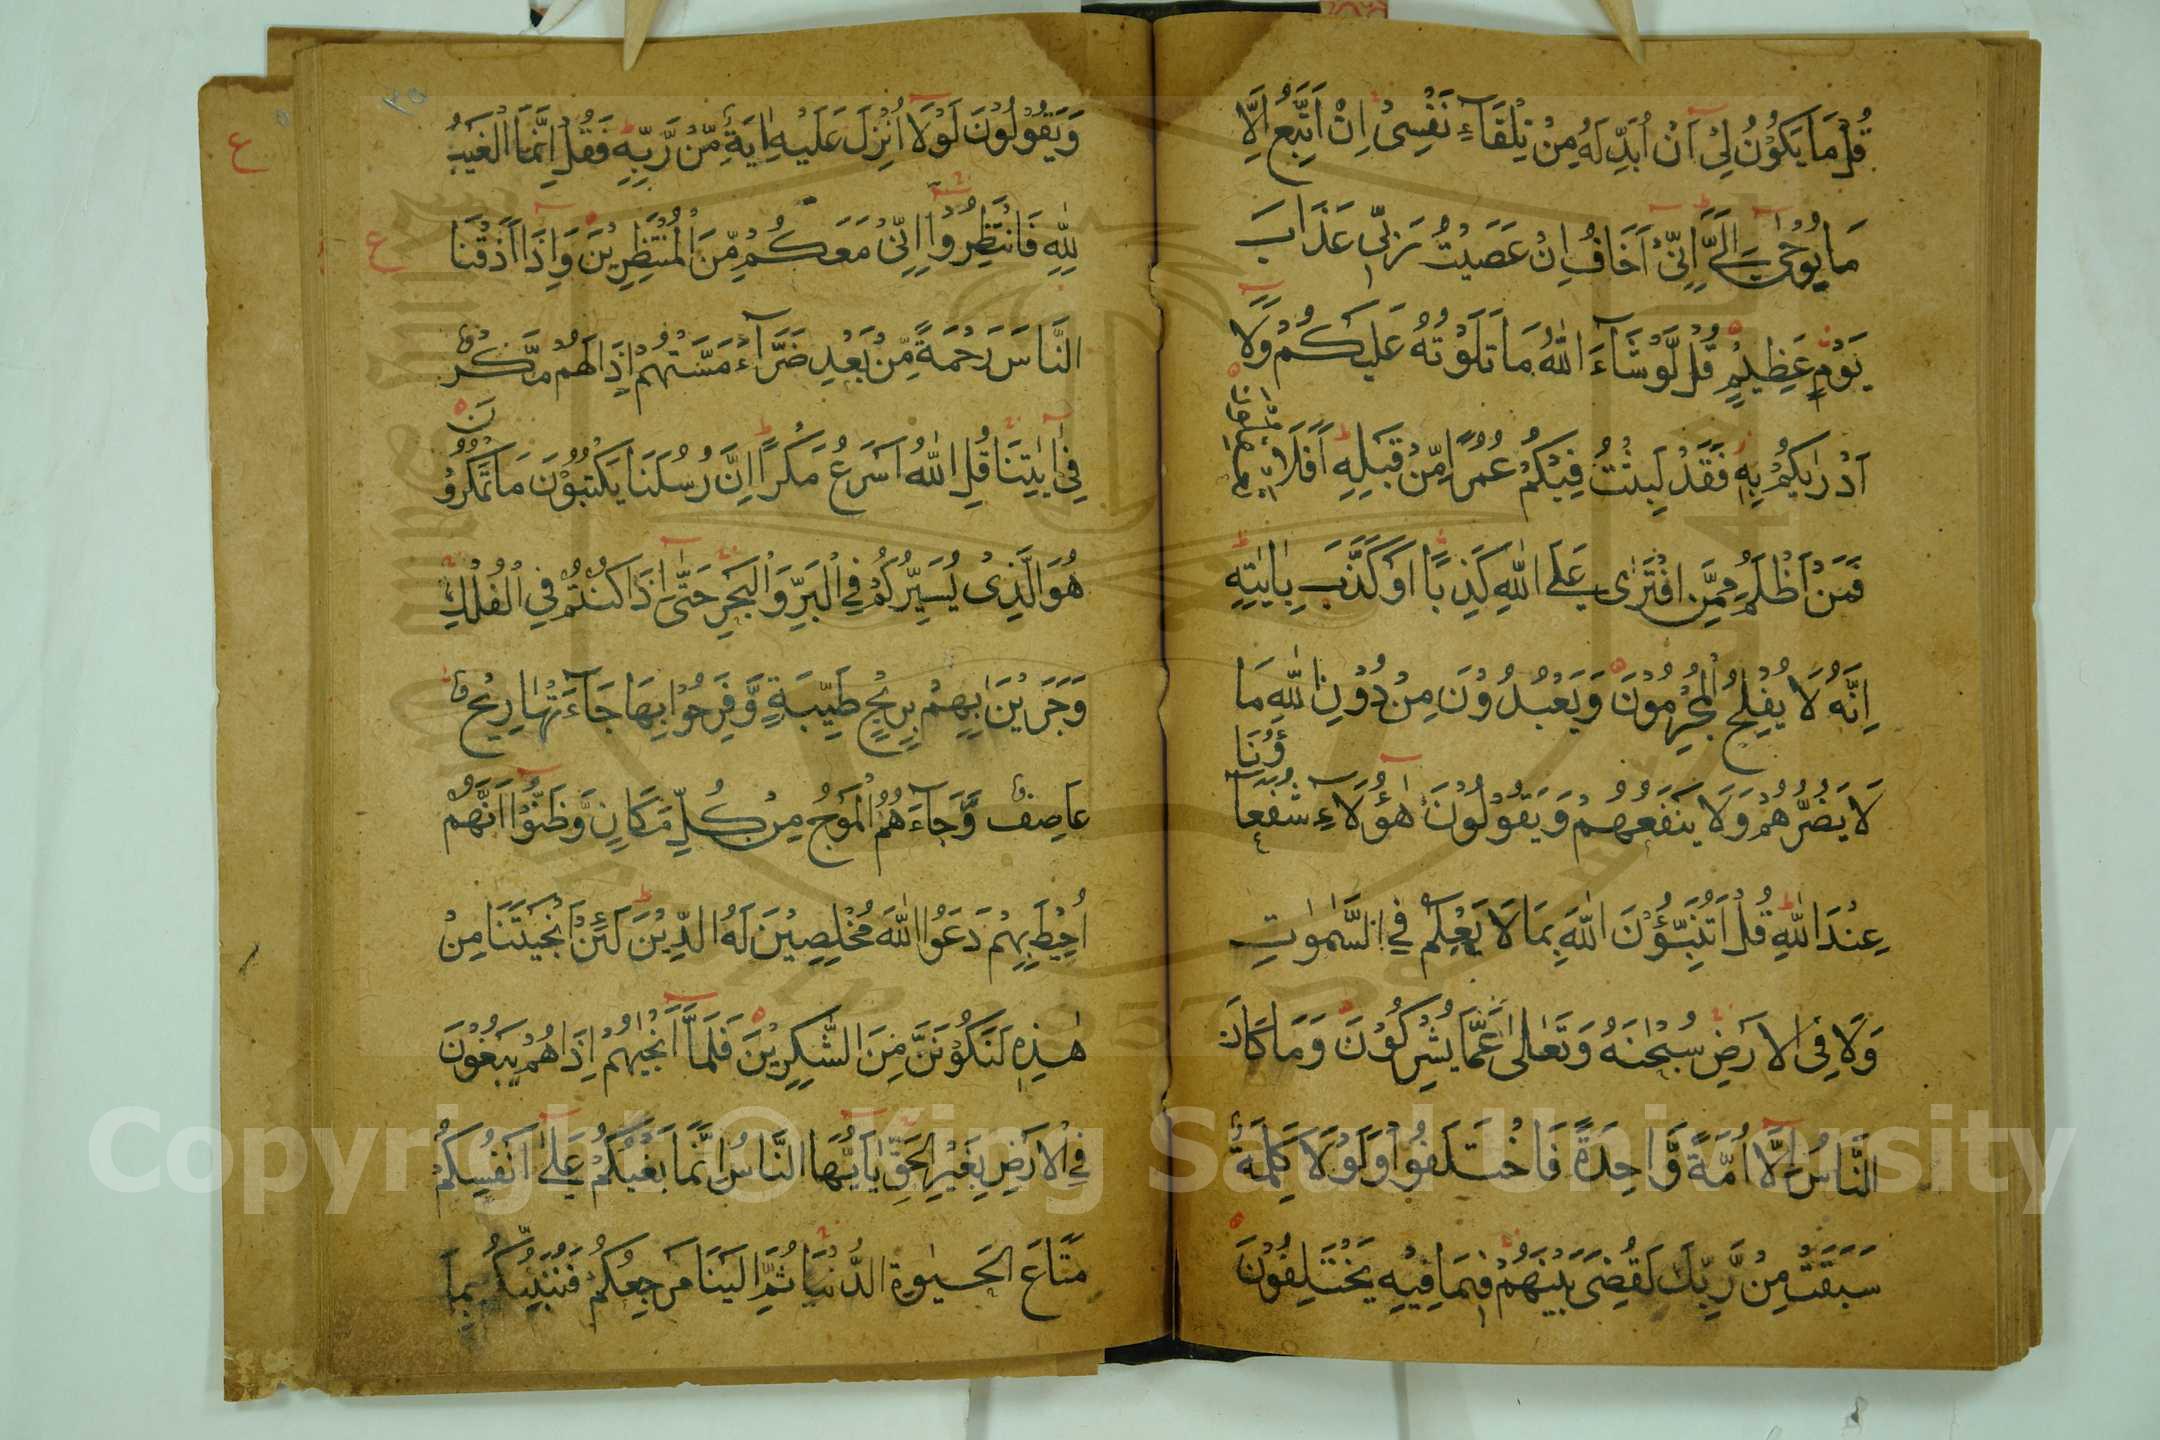 قُلْ مَا يَكُوْنُ لِيْٓ اَنْ اُبَدِّلَهٗ مِنْ تِلْقَآءِ نَفْسِيْ اِنْ اَتَّبِعُ اِلَّا
مَا يُوْحٰٓى اِلَيَّ اِنِّيْٓ اَخَافُ اِنْ عَصَيْتُ رَبِّيْ عَذَابَ
يَوْمٍ عَظِيْمٍ قُلْ لَّوْ شَآءَ اللّٰهُ مَا تَلَوْتُهٗ عَلَيْكُمْ وَلَآ
اَدْرٰىكُمْ بِهٖ فَقَدْ لَبِثْتُ فِيْكُمْ عُمُرًا مِّنْ قَبْلِهٖ اَفَلَا
فَمَنْ اَظْلَمُ مِمَّنِ افْتَرٰى عَلَى اللّٰهِ كَذِبًا اَوْ كَذَّبَ بِاٰيٰتِهٖ
اِنَّهٗ لَا يُفْلِحُ الْمُجْرِمُوْنَ وَيَعْبُدُوْنَ مِنْ دُوْنِ اللّٰهِ مَا
لَا يَضُرُّهُمْ وَلَا يَنْفَعُهُمْ وَيَقُوْلُوْنَ هٰٓؤُلَآءِ شُفَعَآؤُنَا
عِنْدَ اللّٰهِ قُلْ اَتُنَبِّئُوْنَ اللّٰهَ بِمَا لَا يَعْلَمُ فِي السَّمٰوٰتِ
وَلَا فِي الْاَرْضِ سُبْحٰنَهٗ وَتَعٰلٰى عَمَّا يُشْرِكُوْنَ وَمَا كَانَ
النَّاسُ اِلَّآ اُمَّةً وَّاحِدَةً فَاخْتَلَفُوْا وَلَوْلَا كَلِمَةٌ
سَبَقَتْ مِنْ رَّبِّكَ لَقُضِيَ بَيْنَهُمْ فِيْمَا فِيْهِ يَخْتَلِفُوْنَ
وَيَقُوْلُوْنَ لَوْلَآ اُنْزِلَ عَلَيْهِ اٰيَةٌ مِّنْ رَّبِّهٖ فَقُلْ اِنَّمَا الْغَيْبُ
لِلّٰهِ فَانْتَظِرُوْا اِنِّيْ مَعَكُمْ مِّنَ الْمُنْتَظِرِيْنَ وَاِذَآ اَذَقْنَا
النَّاسَ رَحْمَةً مِّنْ بَعْدِ ضَرَّآءَ مَسَّتْهُمْ اِذَا لَهُمْ مَّكْرٌ
فِيْٓ اٰيٰتِنَا قُلِ اللّٰهُ اَسْرَعُ مَكْرًا اِنَّ رُسُلَنَا يَكْتُبُوْنَ مَا تَمْكُرُوْنَ
هُوَ الَّذِيْ يُسَيِّرُكُمْ فِي الْبَرِّ وَالْبَحْرِ حَتّٰٓى اِذَا كُنْتُمْ فِي الْفُلْكِ
وَجَرَيْنَ بِهِمْ بِرِيْحٍ طَيِّبَةٍ وَّفَرِحُوْا بِهَا جَآءَتْهَا رِيْحٌ
عَاصِفٌ وَّجَآءَهُمُ الْمَوْجُ مِنْ كُلِّ مَكَانٍ وَّظَنُّوْٓا اَنَّهُمْ
اُحِيْطَ بِهِمْ دَعَوُا اللّٰهَ مُخْلِصِيْنَ لَهُ الدِّيْنَ لَئِنْ اَنْجَيْتَنَا مِنْ
هٰذِهٖ لَنَكُوْنَنَّ مِنَ الشّٰكِرِيْنَ فَلَمَّآ اَنْجٰىهُمْ اِذَا هُمْ يَبْغُوْنَ
فِي الْاَرْضِ بِغَيْرِ الْحَقِّ يٰٓاَيُّهَا النَّاسُ اِنَّمَا بَغْيُكُمْ عَلٰٓى اَنْفُسِكُمْ
مَتَاعَ الْحَيٰوةِ الدُّنْيَا ثُمَّ اِلَيْنَا مَرْجِعُكُمْ فَنُنَبِّئُكُمْ بِمَا
Copyright © King Saud University